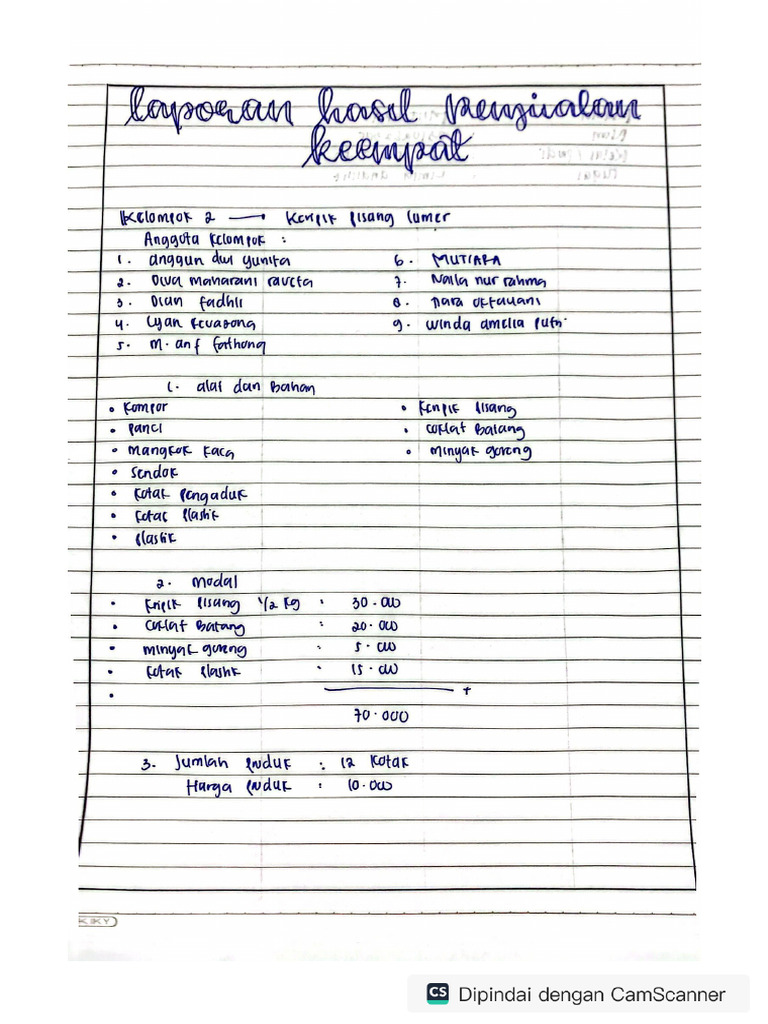 laporan hasil penjualan
keempat
Kelompok 2 → Keripik pisang lumer
Anggota kelompok :
1. anggun dwi yunita
6. MUTIARA
2. Diva maharani
7. Naila nur rahma
3. Dian fadhli
8. nara oktaviani
4.
9. winda amelia putri
5. M. arif
1. alat dan Bahan
• Kompor
• Keripik pisang
• panci
• coklat Batang
• Mangkok kaca
• minyak goreng
• sendok
• kotak pengaduk
• kotak plastik
• plastik
2. Modal
• kripik pisang 1/2 kg : 30.000
• coklat Batang : 20.000
• minyak goreng : 5.000
• kotak plastik : 15.000
• +
70.000
3. Jumlah produk : 12 kotak
Harga produk : 10.000
KIKY
CS Dipindai dengan CamScanner